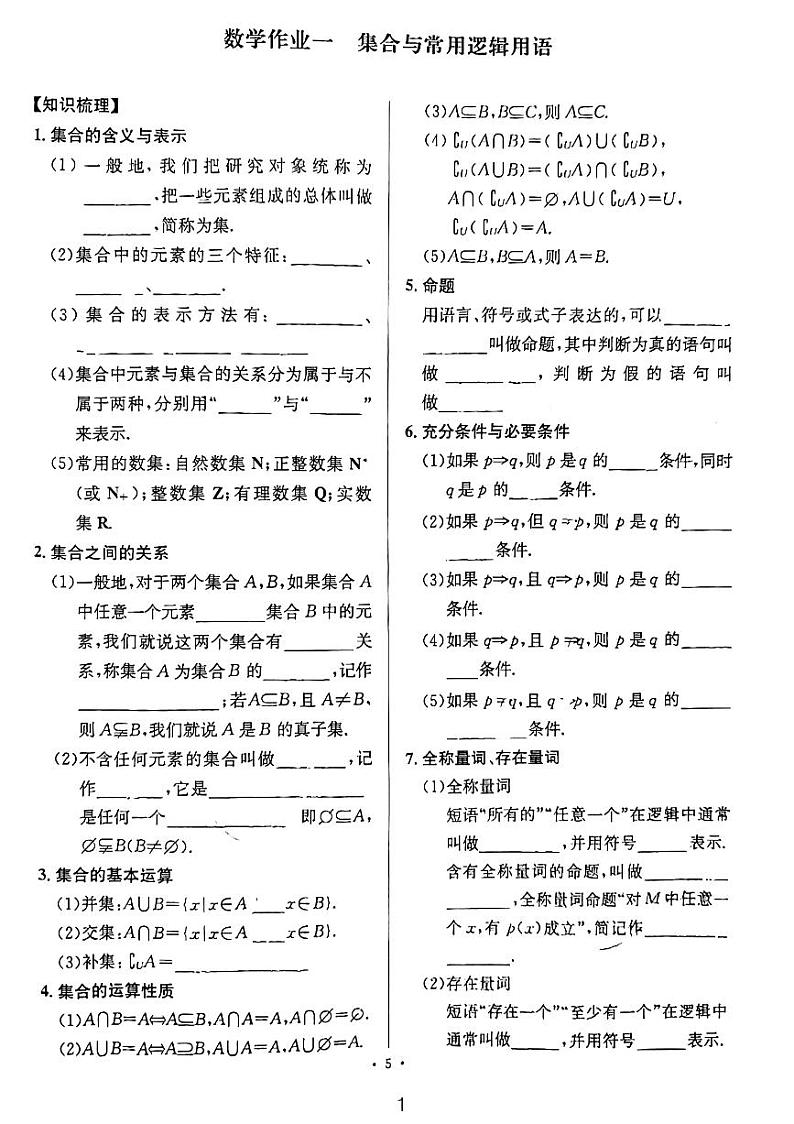 数学作业一 集合与常用逻辑用语
【知识梳理】
1. 集合的含义与表示
(1) 一般地,我们把研究对象统称为
______,把一些元素组成的总体叫做
______,简称为集.
(2)集合中的元素的三个特征:______、
______、______.
(3)集合的表示方法有:______、
______ ______ ______
(4)集合中元素与集合的关系分为属于与不
属于两种,分别用“______”与“______”
来表示.
(5)常用的数集:自然数集 N;正整数集 N*
(或 N₊);整数集 Z;有理数集 Q;实数
集 R.
2. 集合之间的关系
(1)一般地,对于两个集合 A,B,如果集合 A
中任意一个元素______集合 B 中的元
素,我们就说这两个集合有______关
系,称集合 A 为集合 B 的______,记作
____________;若A⊆B,且 A≠B,
则 A⫋B,我们就说 A 是 B 的真子集.
(2)不含任何元素的集合叫做______,记
作______,它是____________
是任何一个____________ 即∅⊆A,
∅⫋B(B≠∅).
3. 集合的基本运算
(1)并集:A∪B={x|x∈A ___x∈B}.
(2)交集:A∩B={x|x∈A ___x∈B}.
(3)补集:∁UA=____________
4. 集合的运算性质
(1)A∩B=A⇔A⊆B,A∩A=A,A∩∅=∅.
(2)A∪B=A⇔A⊇B,A∪A=A,A∪∅=A.
(3)A⊆B,B⊆C,则 A⊆C.
(4) ∁U(A∩B)=(∁UA)∪(∁UB),
∁U(A∪B)=(∁UA)∩(∁UB),
A∩(∁UA)=∅,A∪(∁UA)=U,
∁U(∁UA)=A.
(5)A⊆B,B⊆A,则 A=B.
5. 命题
用语言、符号或式子表达的,可以______
______叫做命题,其中判断为真的语句叫
做 ________,判断为假的语句叫
做______
6. 充分条件与必要条件
(1)如果 p⇒q,则 p 是 q 的____条件,同时
q 是 p 的____条件.
(2)如果 p⇒q,但 q⇏p,则 p 是 q 的____
____条件.
(3)如果 p⇒q,且 q⇒p,则 p 是 q 的____
条件.
(4)如果 q⇒p,且 p⇏q,则 p 是 q 的____
___条件.
(5)如果 p⇏q,且 q⇏p,则 p 是 q 的____
______条件.
7. 全称量词、存在量词
(1)全称量词
短语“所有的”“任意一个”在逻辑中通常
叫做________,并用符号____表示.
含有全称量词的命题,叫做________
______,全称量词命题“对 M 中任意一
个 x,有 p(x)成立”,简记作________
______.
(2)存在量词
短语“存在一个”“至少有一个”在逻辑中
通常叫做____,并用符号____表示.
· 5 ·
1